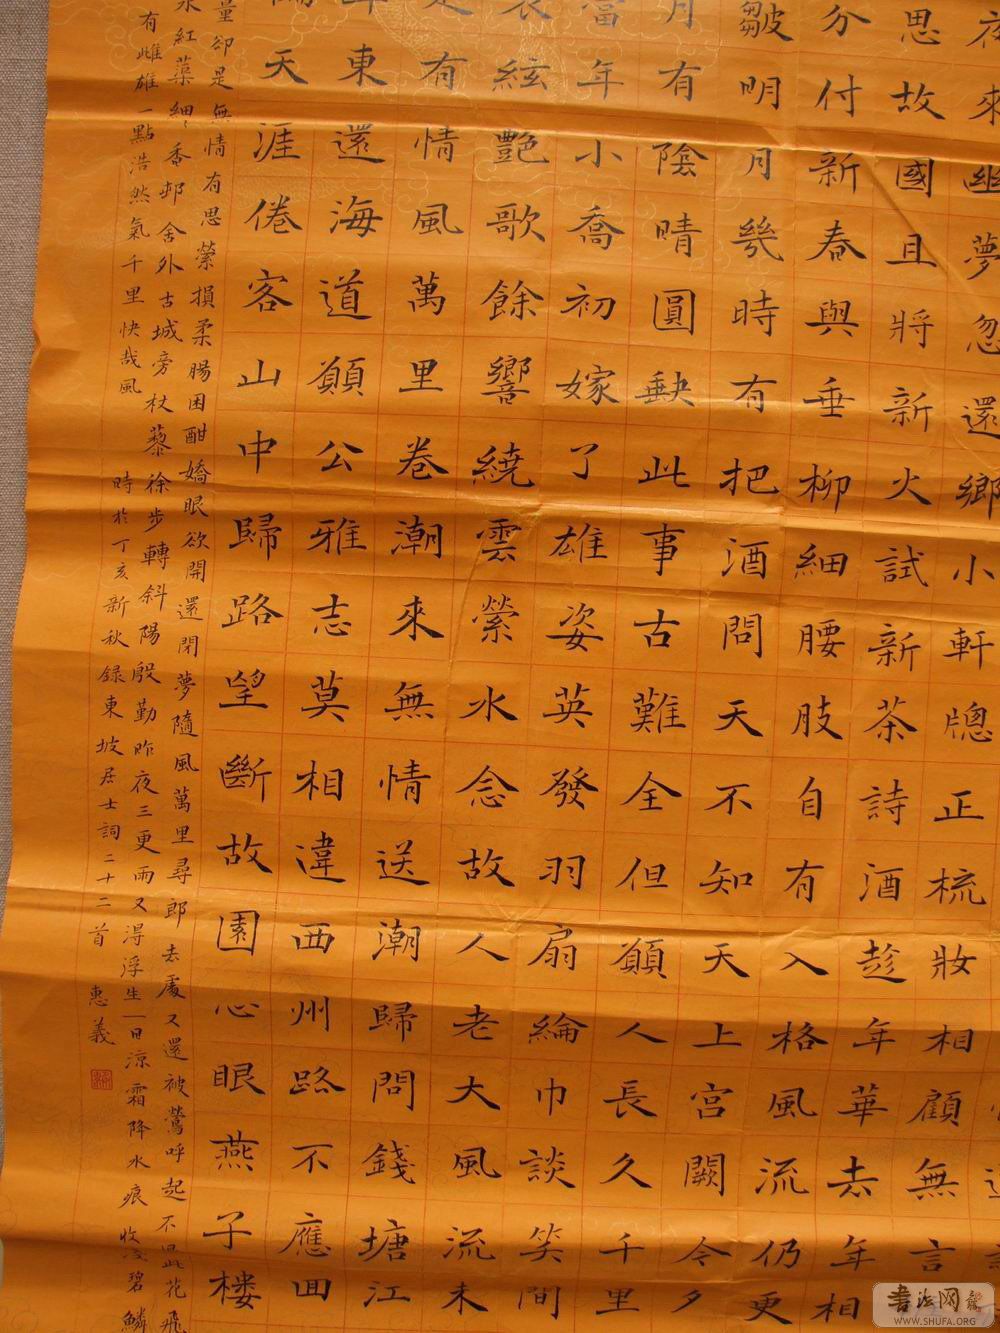 夜來幽夢忽還鄉小軒牕正梳妝相顧無言
思故國且將新火試新茶詩酒趁年華去年相
分付新春與垂柳細腰肢自有入格風流仍更
皺明月幾時有把酒問天不知天上宮闕今夕
月有陰晴圓缺此事古難全但願人長久千里
當年小喬初嫁了雄姿英發羽扇綸巾談笑間
裳絃艷歌餘響繞雲縈水念故人老大風流未
是有情風萬里卷潮來無情送潮歸問錢塘江
年東還海道願公雅志莫相違西州路不應囬
天涯倦客山中歸路望斷故園心眼燕子樓
量卻是無情有思縈損柔腸困酣嬌眼欲開還閉夢隨風萬里尋郎去處又還被鶯呼起不恨此花飛
永紅蕖細〻香邨舍外古城旁杖藜徐步轉斜陽殷勤昨夜三更雨又得浮生一日涼霜降水痕收淺碧鱗
有雌雄一點浩然氣千里快哉風 時於丁亥新秋錄東坡居士詞二十二首 惠義
書法网
WWW.SHUFA.ORG